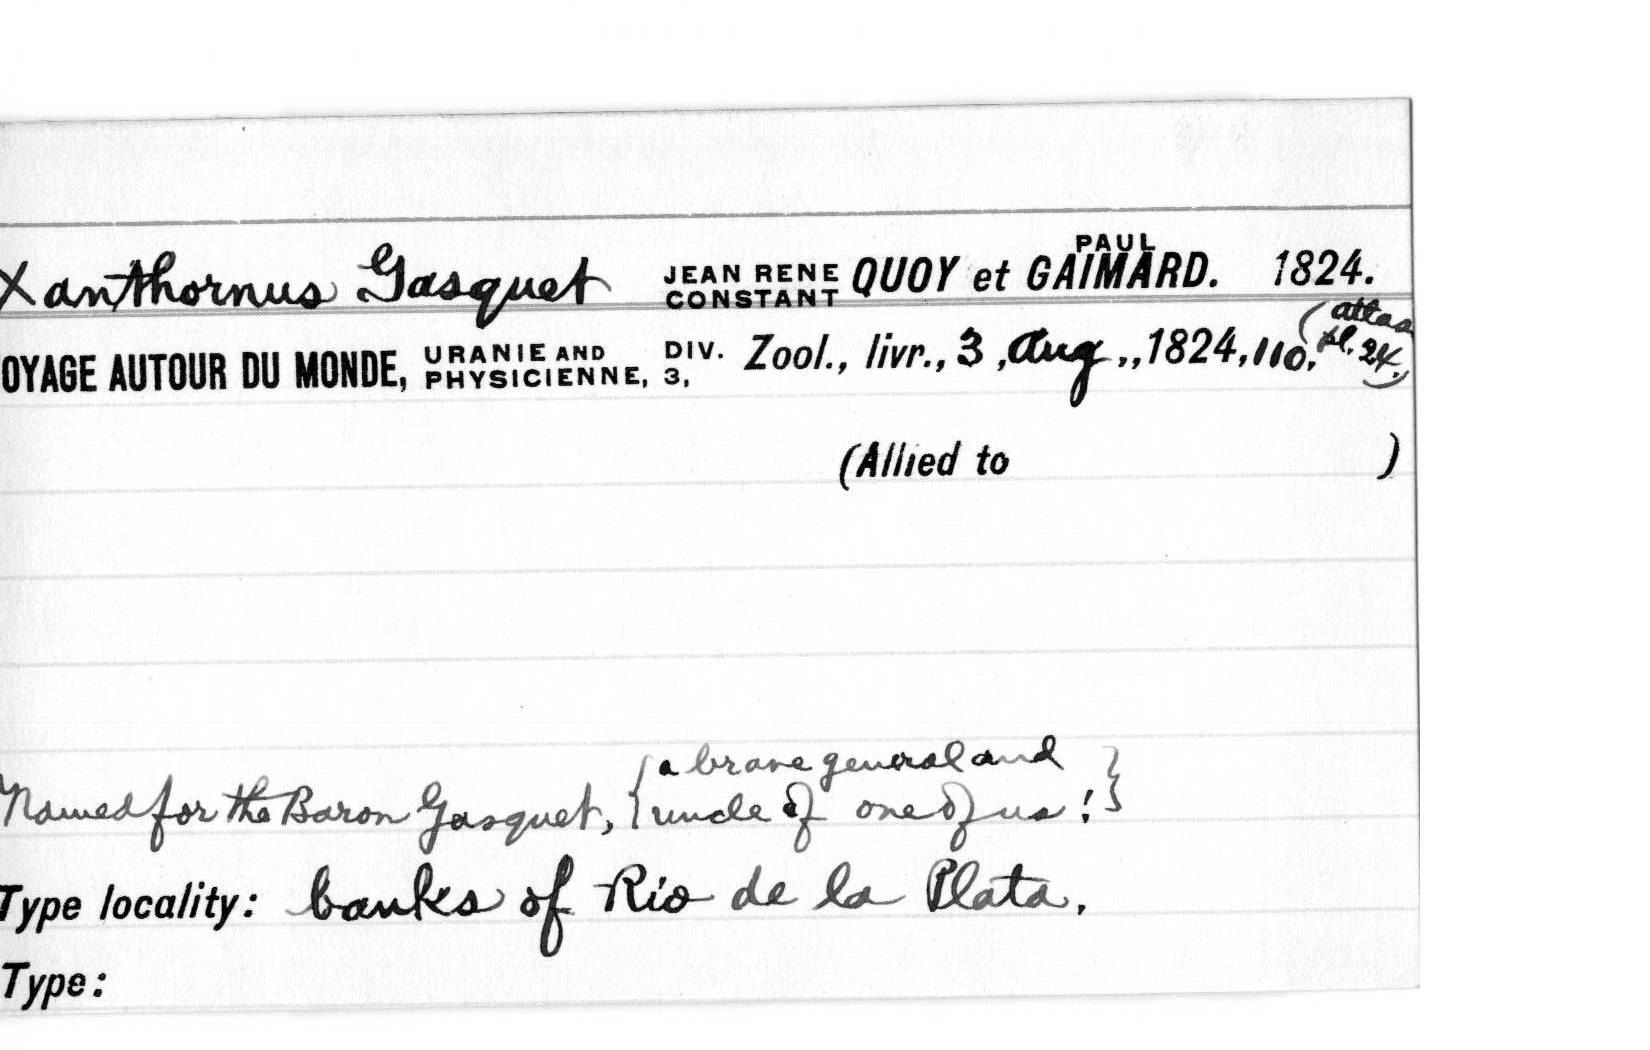 Xanthornus Gasquet JEAN RENE CONSTANT QUOY et PAUL GAIMARD. 1824.
OYAGE AUTOUR DU MONDE, URANIE AND PHYSICIENNE, DIV. 3, Zool., livr., 3, Aug., 1824, 110, (atlas pl. 24.)
(Allied to )
Named for the Baron Gasquet, {a brave general and uncle of one of us!}
Type locality: banks of Rio de la Plata.
Type: